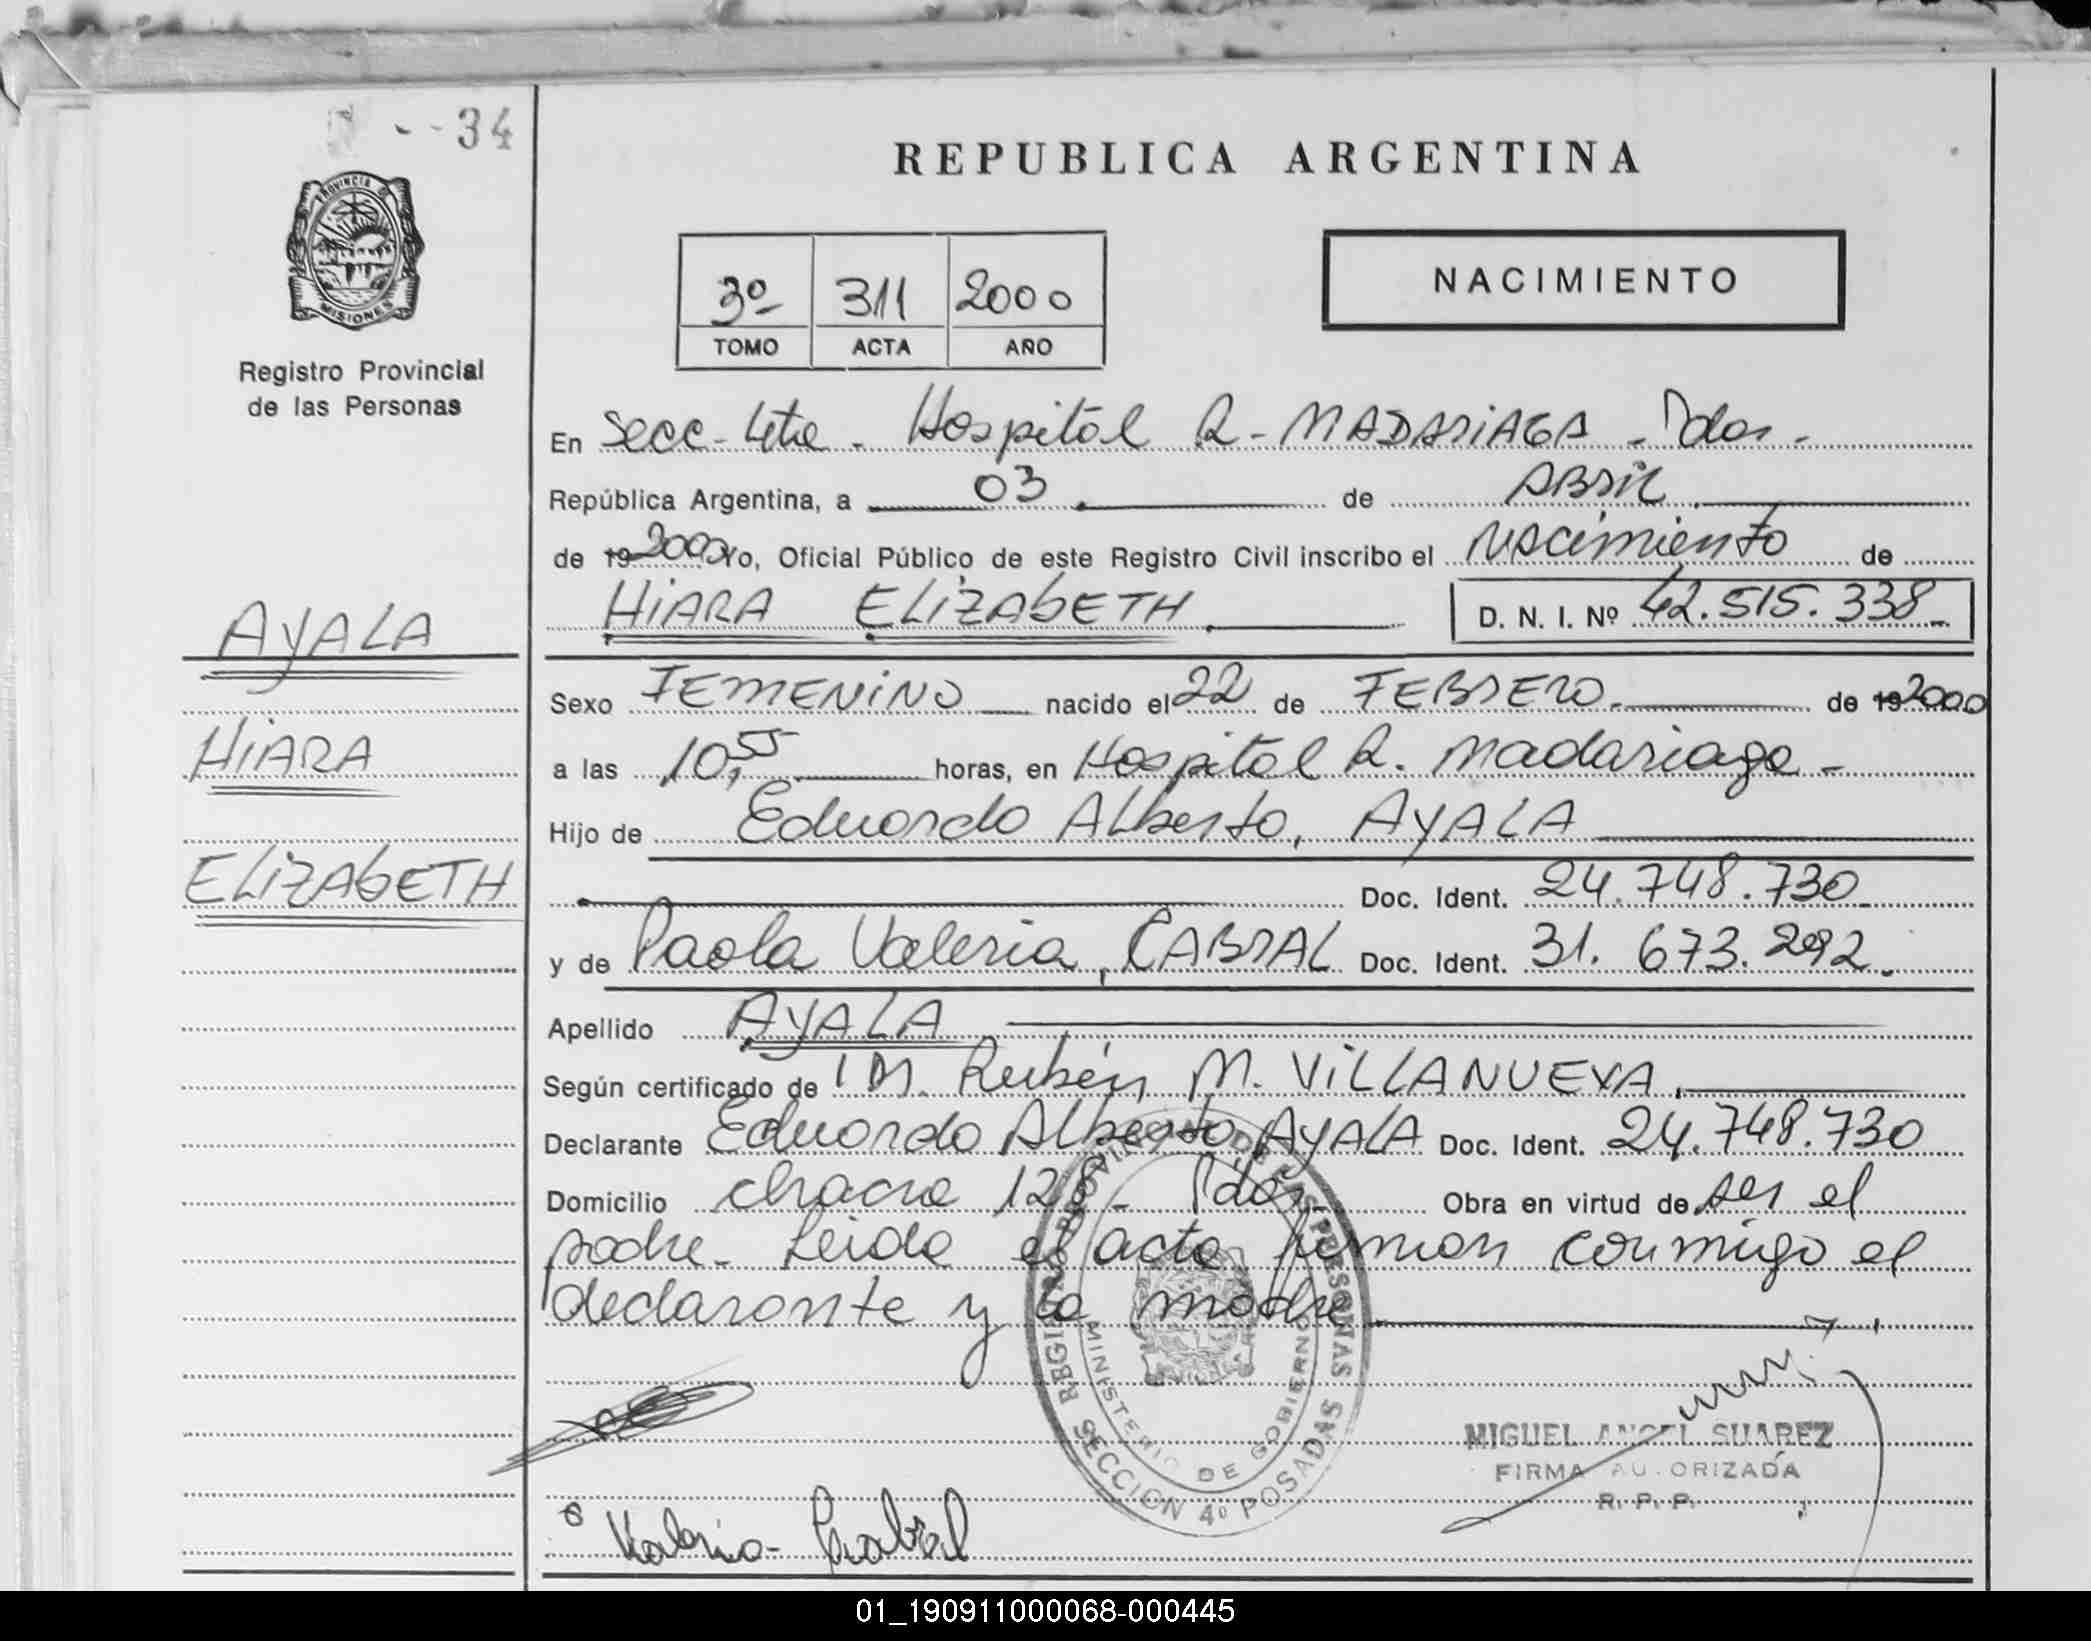 34
PROVINCIA DE
MISIONES
Registro Provincial
de las Personas
AYALA
HIARA
ELIZABETH
REPUBLICA ARGENTINA
3º 311 2000
TOMO ACTA AÑO
NACIMIENTO
En Secc. 4ta. Hospital R. MADARIAGA - Pdas.
República Argentina, a 03 de ABRIL
de 19 2000 Yo, Oficial Público de este Registro Civil inscribo el nacimiento de
HIARA ELIZABETH D. N. I. Nº 42.515.338
Sexo FEMENINO nacido el 22 de FEBRERO de 19 2000
a las 10,55 horas, en Hospital R. Madariaga -
Hijo de Eduardo Alberto, AYALA
Doc. Ident. 24.748.730
y de Paola Valeria, CABRAL Doc. Ident. 31.673.292.
Apellido AYALA
Según certificado de Dr. Rubén M. VILLANUEVA
Declarante Eduardo Alberto AYALA Doc. Ident. 24.748.730
Domicilio chacra 128 - Pdas. Obra en virtud de ser el
padre. Leida el acta firman conmigo el
declarante y la madre
MINISTERIO DE GOBIERNO
SECCION 4º POSADAS
MIGUEL ANGEL SUAREZ
FIRMA AUTORIZADA
R. P. P.
Valeria Cabral
01_190911000068-000445